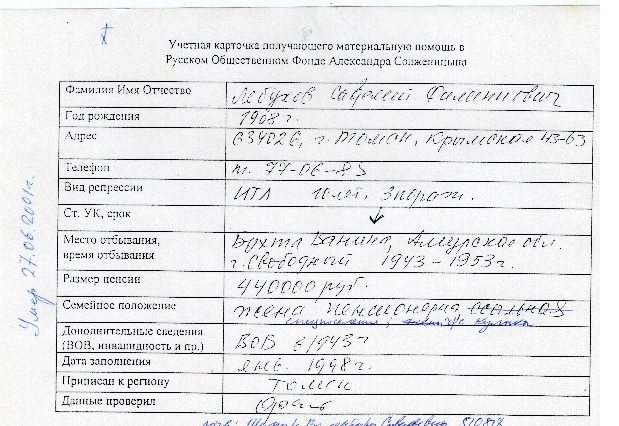 Учетная карточка получающего материальную помощь в
Русском Общественном Фонде Александра Солженицына
Фамилия Имя Отчество Лебухов Савелий Филиппович
Год рождения 1908 г.
Адрес 634026, г. Томск, Крымская 43-63
Телефон т. 77-06-83
Вид репрессии ИТЛ 10 лет.
Ст. УК, срок
Место отбывания, Бухта Ванина, Амурская обл.
время отбывания г. Свободный 1943 - 1953 г.
Размер пенсии 440000 руб.
Семейное положение жена пенсионерка
Дополнительные сведения
(ВОВ, инвалидность и пр.) ВОВ 1943 г
Дата заполнения янв. 1998 г.
Приписан к региону Томск
Данные проверил
Умер 27.06.2001 г.